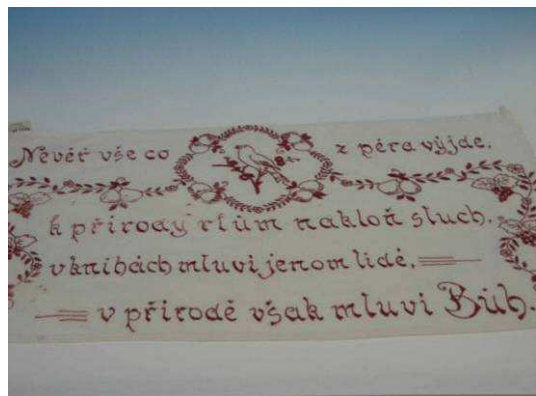 Nevěř vše co z péra výjde,
k přírody rtům nakloň sluch.
v knihách mluví jenom lidé,
v přírodě však mluví Bůh.